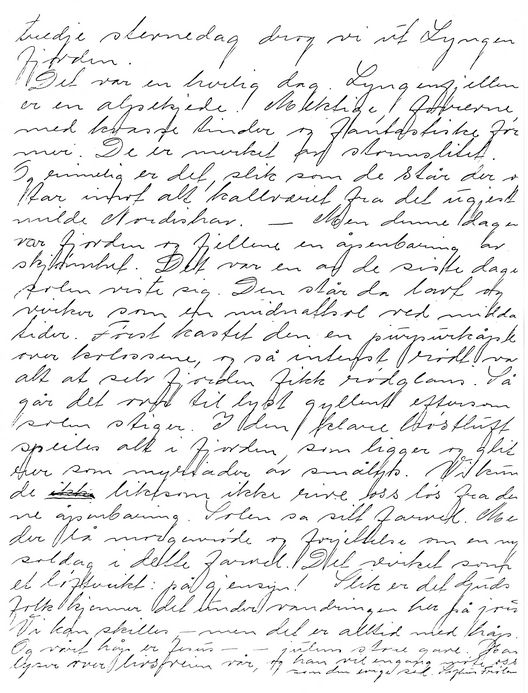 tredje stevnedag drog vi ut Lyngen
fjorden.
Det var en herlig dag. Lyngenfjellen
er en alpekjede. Mektige,
med kvasse tinder og fantastiske for
mer. De er merket av stormslitet.
Og rimelig er det slik som de står der o
tar imot alt kallværet fra det ugjest
milde Nordishav. — Men denne dagen
var fjorden og fjellene en åpenbaring av
skjønnhet. Det var en av de siste dage
solen viste sig. Den står da lavt og
virker som en midnattsol ved midda
tider. Først kastet den en purpurkåpe
over kolossene, og så intenst rødt va
alt at selv fjorden fikk rødglans. Så
går det over til lyst gyllent eftersom
solen stiger. I den klare høstluft
speiles alt i fjorden, som ligger og glit
rer som myriader av smålys. Vi kun
de ikke liksom ikke rive oss løs fra den
ne åpenbaring. Solen sa sitt farvel. Me
der lå morgenrøde og forjettelse om en ny
soldag i dette farvel. Det virket som
et løfterikt: på gjensyn! Slik er det Guds
folk kjenner det under vandringen her på jord
Vi kan skilles, — men det er alltid med håp.
Og vårt håp er Jesus — — julens store gave. Han
lyser over livsveien vår, og han vil engang møte oss
som den evige sol.